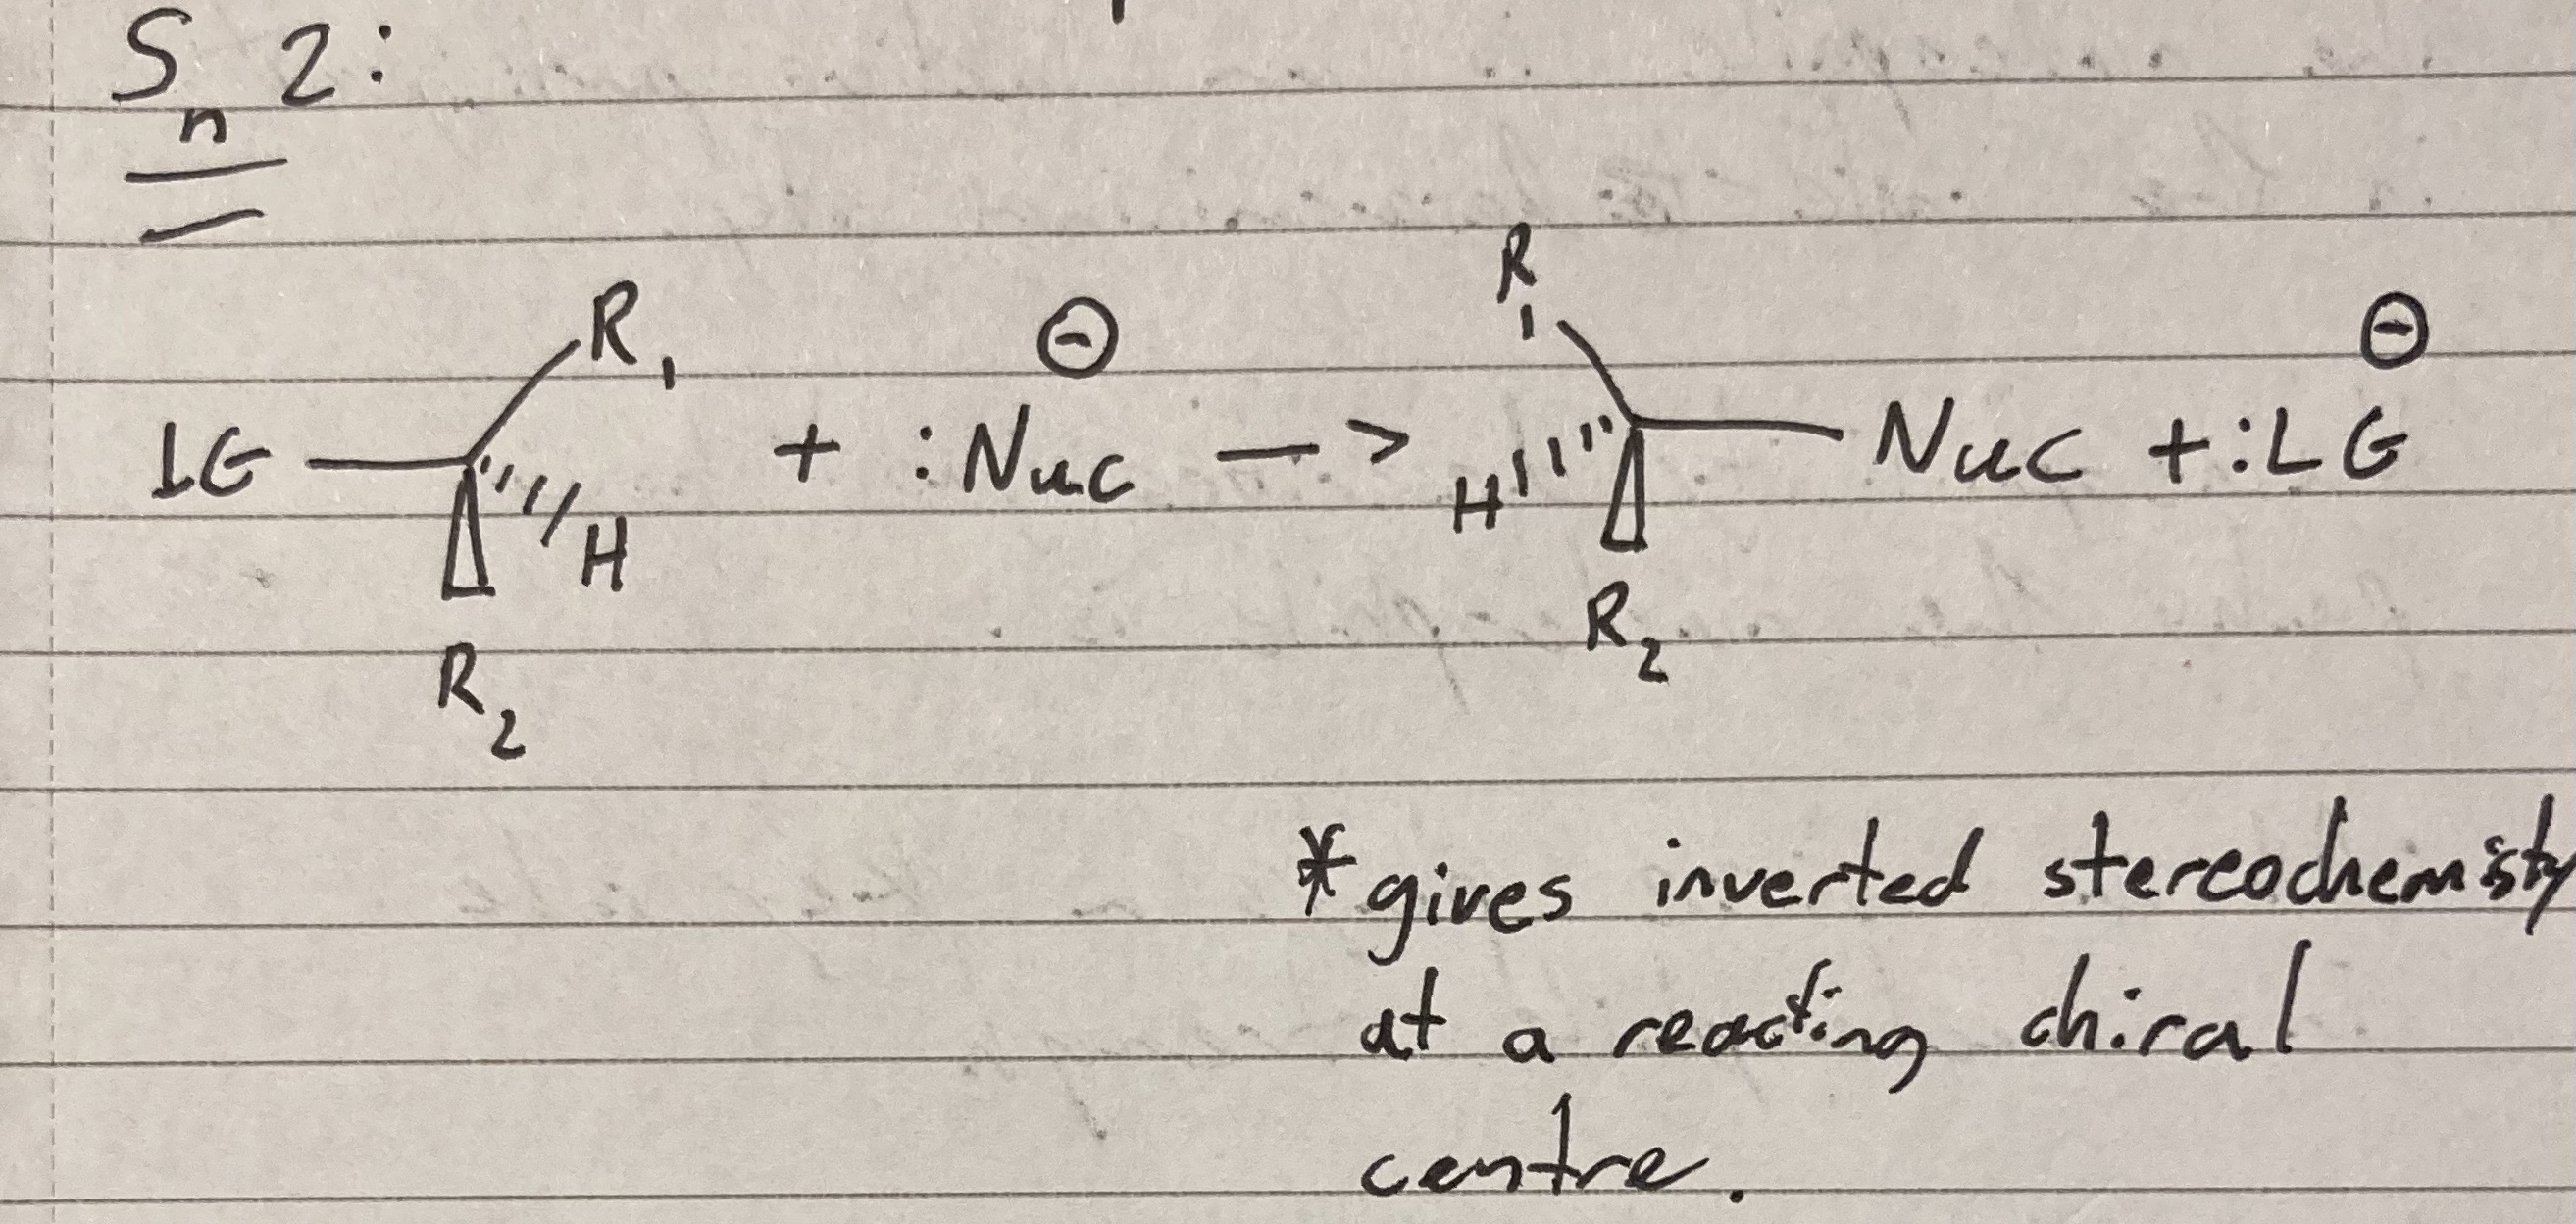 Sn2:
R1 ⊖ R1 ⊖
LG + :Nuc —> Nuc + :LG
H H
R2 R2
*gives inverted stereochemisty
at a reacting chiral
centre.